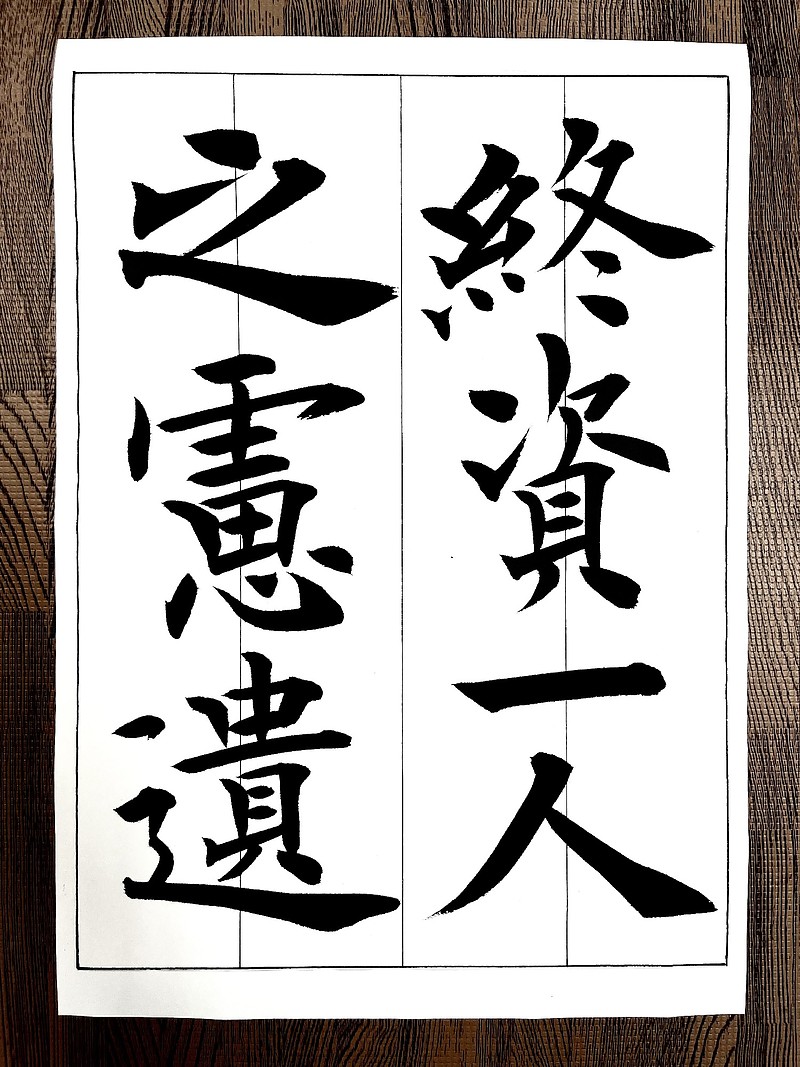 終資一人
之慮遺